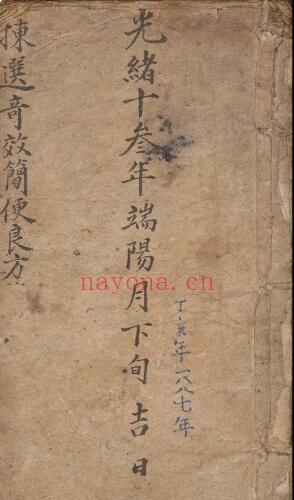 丁亥年一八八七年
光緒十叁年端陽月下旬吉日
揀選奇效簡便良方
nayona.cn